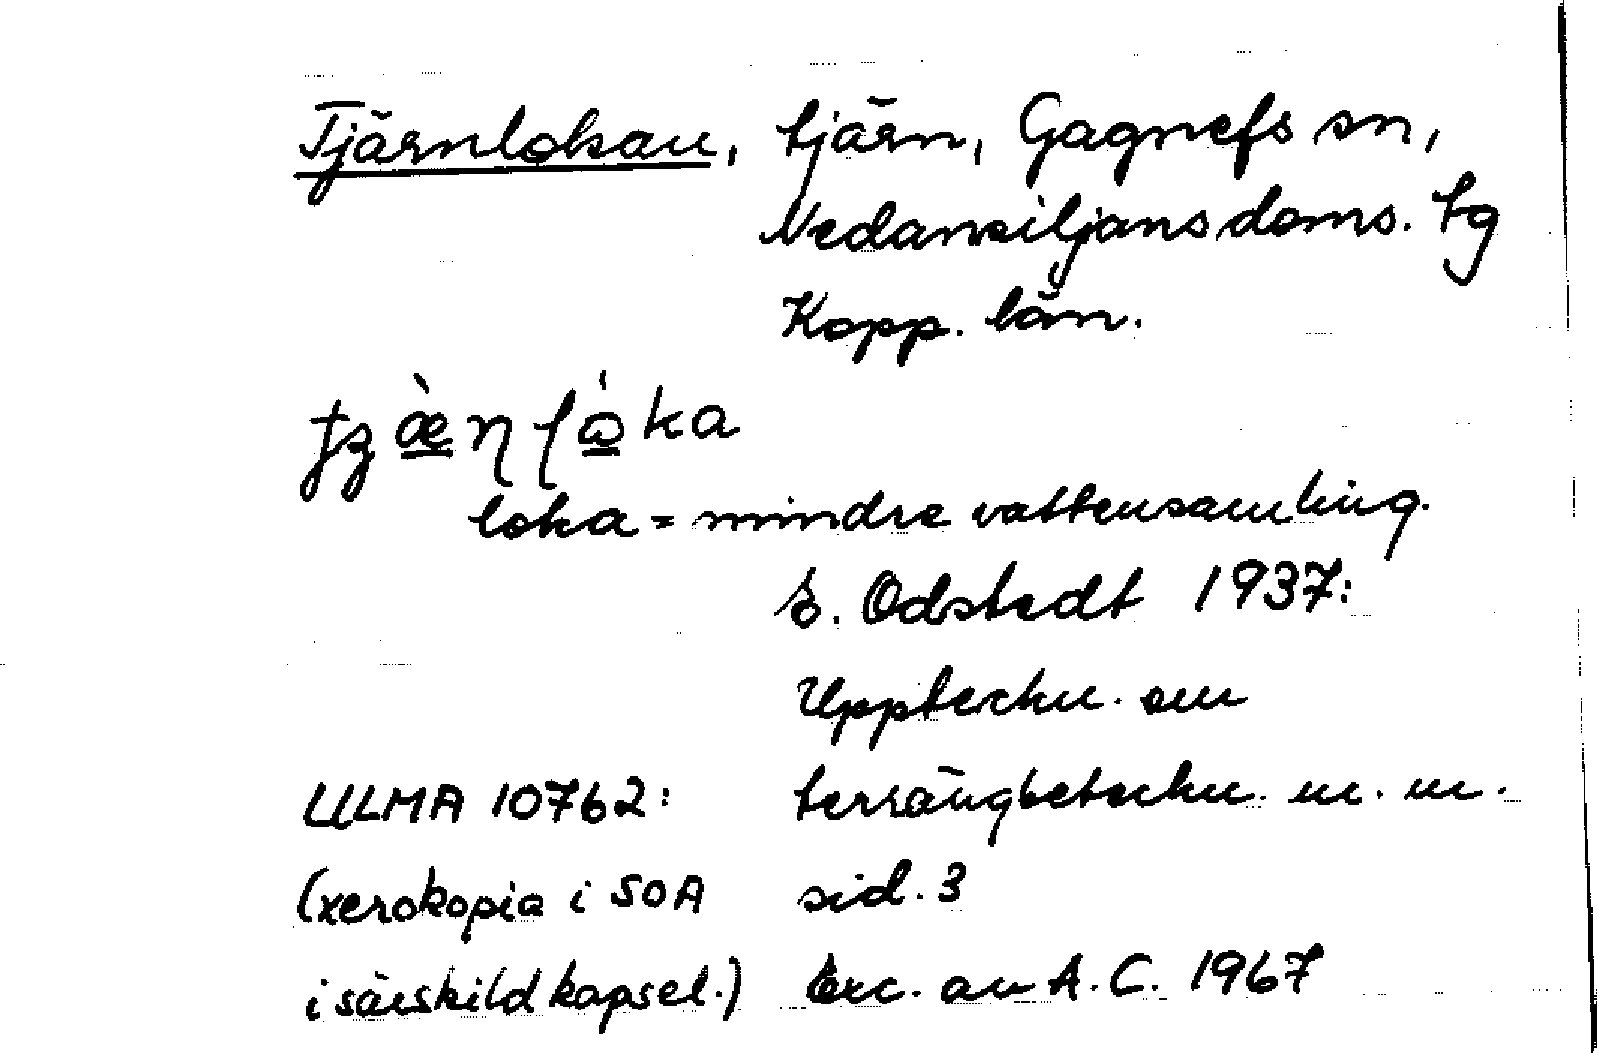 Tjärnlokan, tjärn, Gagnefs sn,
Nedansiljans doms. tg
Kopp. län.
loka = mindre vattensamling.
E. Odstedt 1937:
Uppteckn. om
ULMA 10762: terrängbeteckn. m. m.
(xerokopia i SOA sid. 3
i särskild kapsel.) Exc. av A. C. 1967